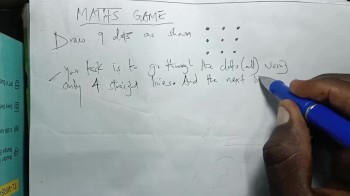 MATHS GAME
Draw 9 dots as shown
Your task is to go through the dots (all) using
only 4 straight lines. And the next